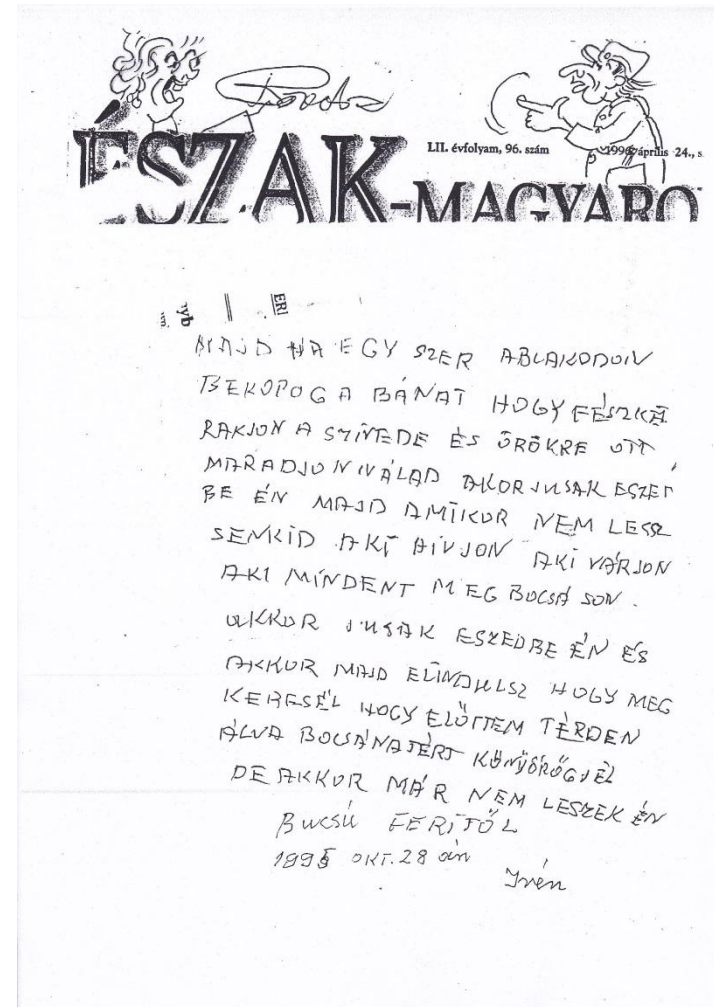 LII. évfolyam, 96. szám 1996. április 24., s
ÉSZAK-MAGYARO
yb ERI
MAJD HA EGY SZER ABLAKODON
BEKOPOG A BÁNAT HOGY FÉSZKE
RAKJON A SZÍVEDE ÉS ÖRÖKRE OTT
MARADJON NÁLAD AKOR JUSAK ESZED
BE ÉN MAJD AMIKOR NEM LESZ
SENKID AKI HÍVJON AKI VÁRJON
AKI MINDENT MEG BOCSÁ SON.
AKKOR JUSAK ESZEDBE ÉN ÉS
AKKOR MAJD ELINDULSZ HOGY MEG
KERESÉL HOGY ELŐTTEM TÉRDEN
ÁLVA BOCSÁNATÉRT KÖNYÖRÖGJÉL
DE AKKOR MÁR NEM LESZEK ÉN
BUCSÚ FERITŐL
1995 OKT. 28 án
Irén